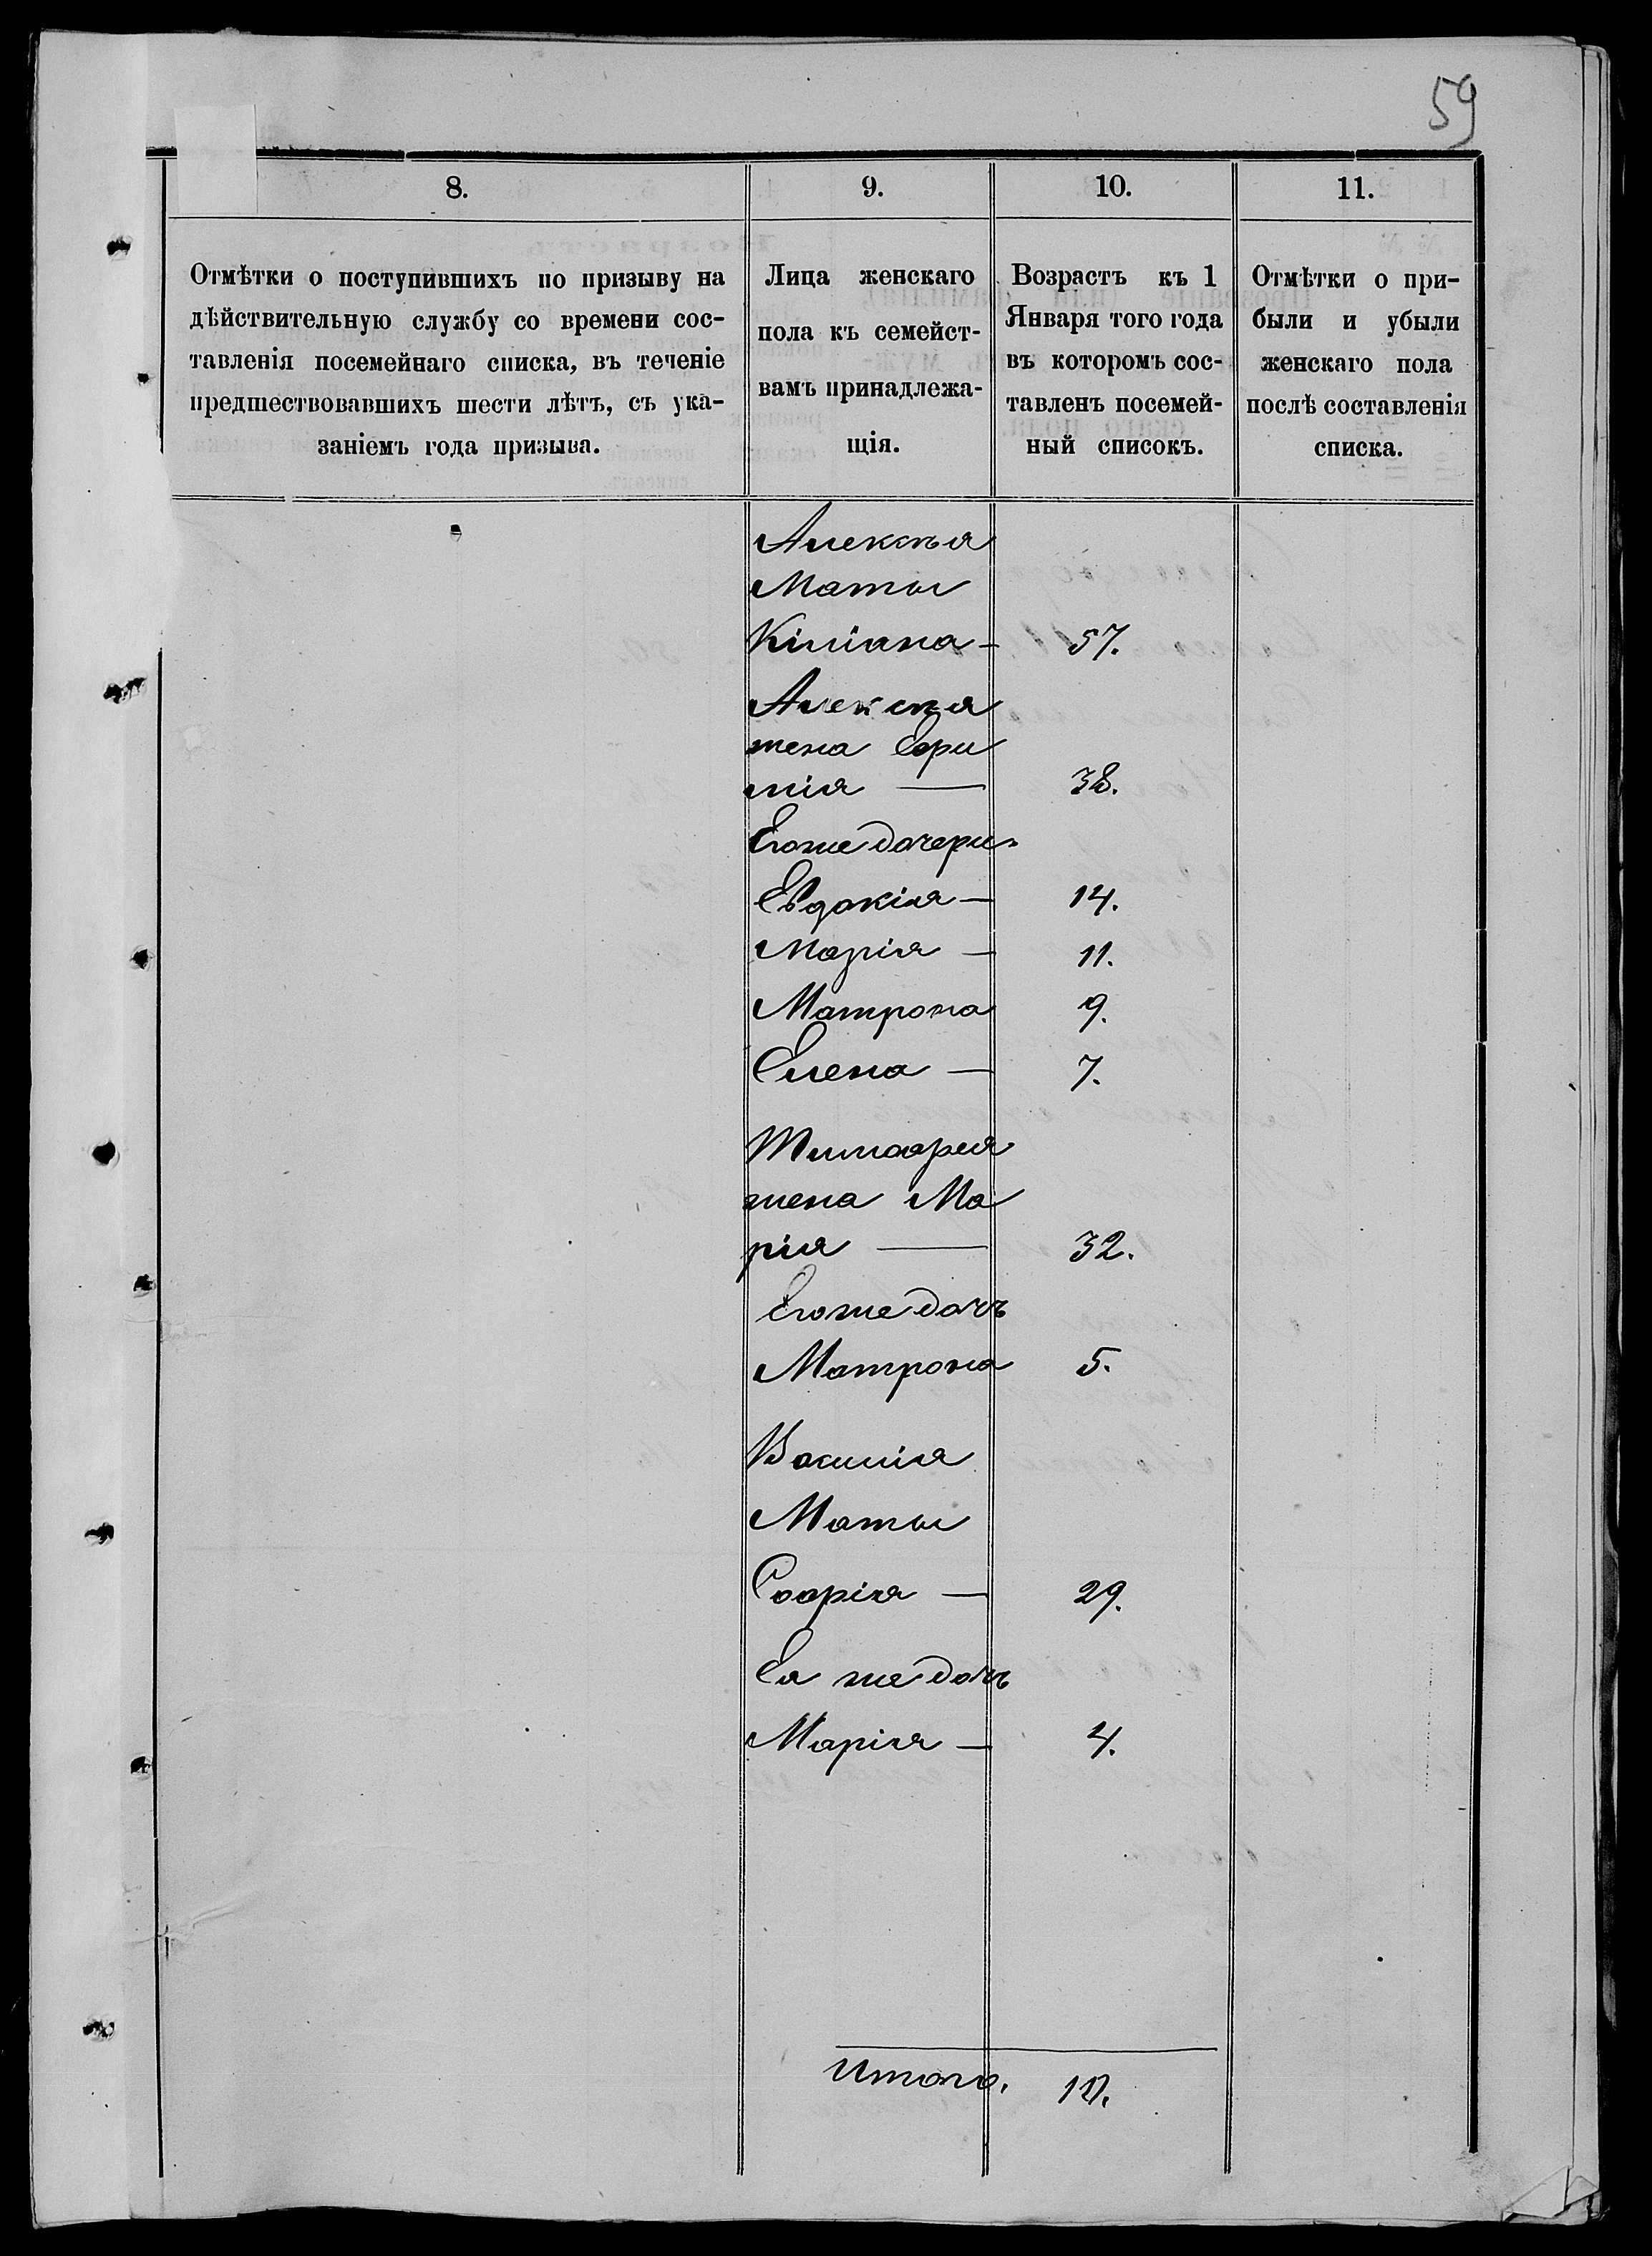 59
8.
9.
10.
11.
Отмѣтки о поступившихъ по призыву на
дѣйствительную службу со времени сос-
тавленія посемейнаго списка, въ теченіе
предшествовавшихъ шести лѣтъ, съ ука-
заніемъ года призыва.
Лица женскаго
пола къ семейст-
вамъ принадлежа-
щія.
Возрастъ къ 1
Января того года
въ которомъ сос-
тавленъ посемей-
ный списокъ.
Отмѣтки о при-
были и убыли
женскаго пола
послѣ составленія
списка.
Алексѣя
Мать
57.
Алексѣя
жена Ефи
мія — 38.
Егоже дочери
Евдокія — 14.
Марія — 11.
Матрона 9.
Елена — 7.
Тимофея
жена Ма
рія — 32.
Егоже дочь
Матрона 5.
Василія
Мать
Софія — 29.
Ея же дочь
Марія — 4.
Итого. 10.